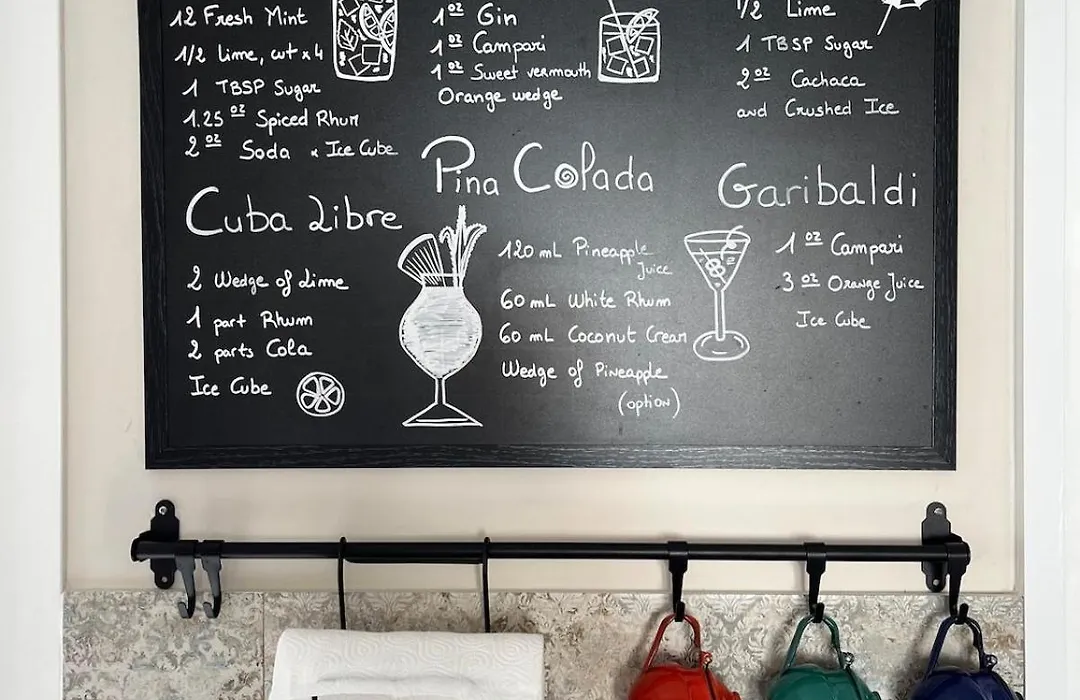 12 Fresh Mint
1/2 Lime, cut x 4
1 TBSP Sugar
1.25 oz Spiced Rhum
2 oz Soda x Ice Cube
1 oz Gin
1 oz Campari
1 oz Sweet vermouth
Orange wedge
1/2 Lime
1 TBSP Sugar
2 oz Cachaca
and Crushed Ice
Cuba Libre
2 Wedge of Lime
1 part Rhum
2 parts Cola
Ice Cube
Pina Colada
120 mL Pineapple
Juice
60 mL White Rhum
60 mL Coconut Cream
Wedge of Pineapple
(option)
Garibaldi
1 oz Campari
3 oz Orange Juice
Ice Cube